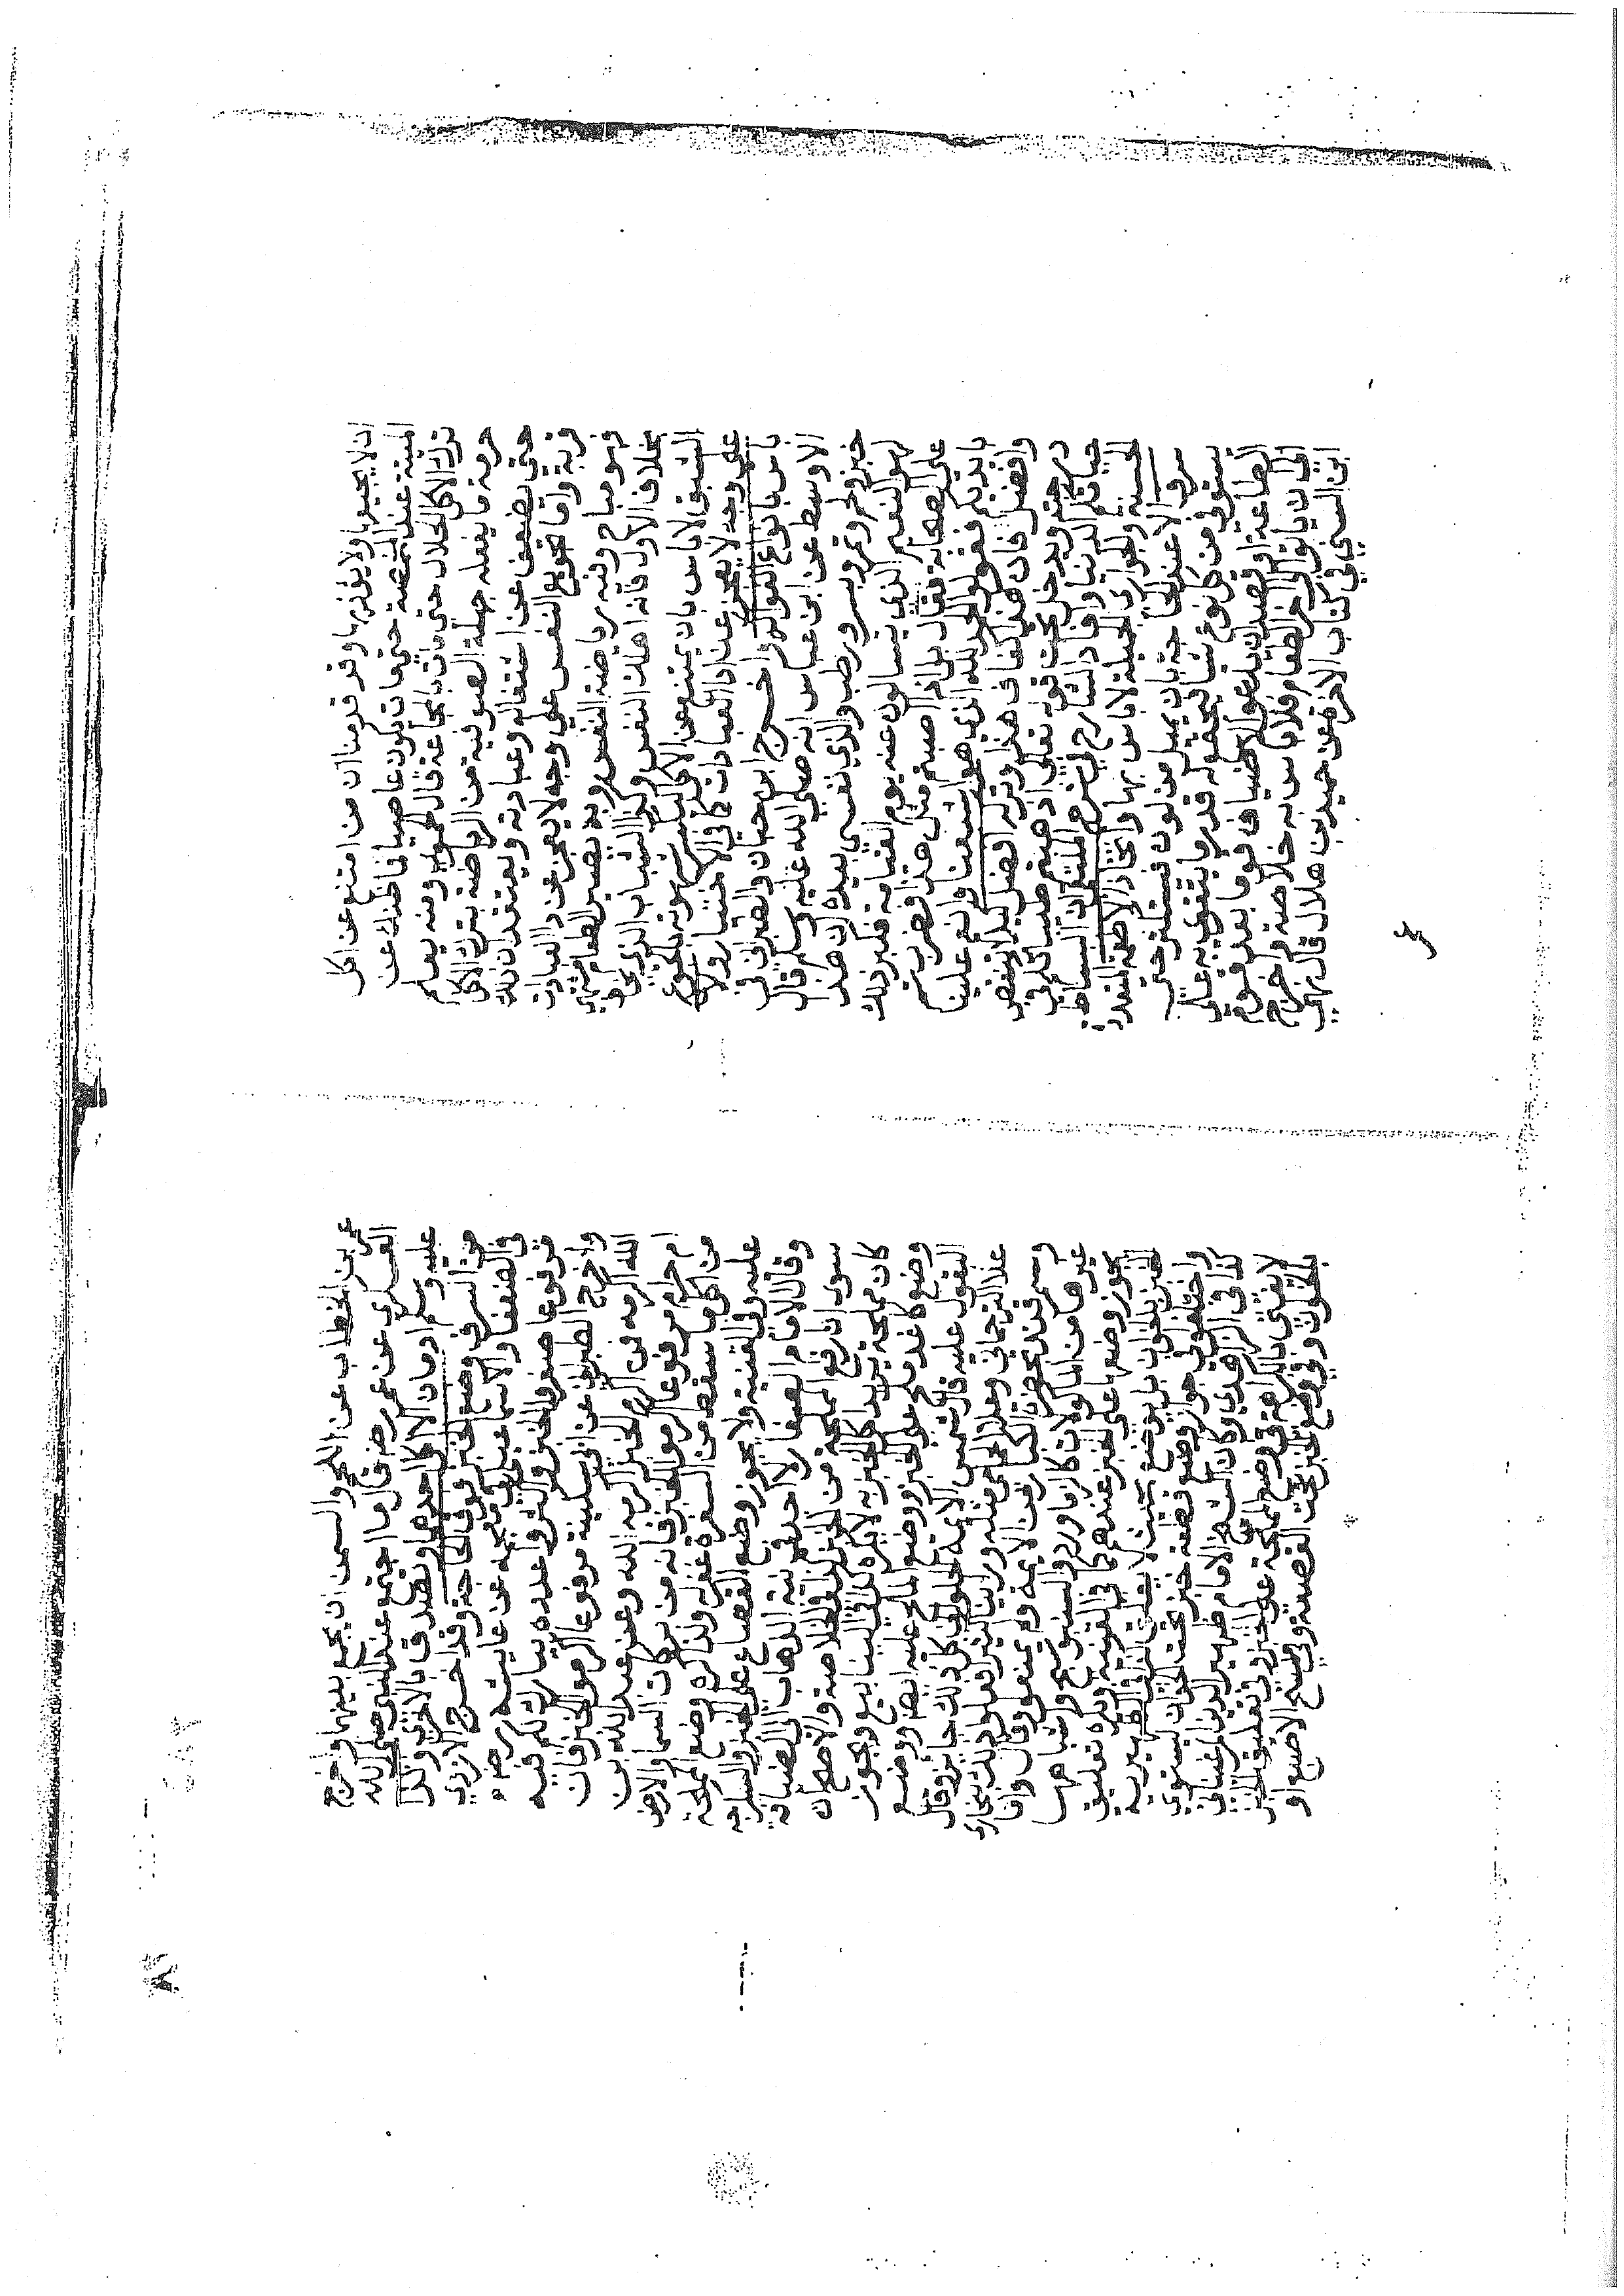 ان لا يحييها ولا يؤذيها وقد قدمنا ان من امتنع عن اكل
الميتة عند المخمصة حتى مات يكون عاصيا فما ظنك عن
ترك الاكل الحلال حتى مات بالمجاعة قال ومنه يعلم
حرمة ما يفعله جهلة الصوفية من الرياضة بترك الاكل
حتى تضعف عن اشتغاله وعبادته ويعتقد ان ذلك
قربة واما تجويع النفس علي وجه لا يعجز عن ادا العبادات
فهو مباح وفيه رياضة النفس وبه يصير الطعام مشتهى
بخلاف الاول فانه اهلاك النفس وكذا الشباب الذي يخاف
الشبق لا باس بان يمتنع عن الاكل ليكسر شهوته بالجوع
على وجه لا يعجز عن ادا العبادات كما في الاختيار ولا
باس بانواع الفواكه واخرج ابن حبان والطبراني في
الاوسط عن ابن عباس انه صلى الله عليه وسلم قال
خبز ولحم وتمر وبسر ورطب والذي نفسي بيده ان هذا
لهو النعيم الذي تسالون عنه يوم القيامة فكبر ذلك
على الصحابة فقال بل اذا اصبتم مثل هذا فضربتم
بايديكم فقولوا الحمد لله الذي هو اشبعنا وانعم علينا
وافضل فان هذا كفاف هذا وتركه افضل ليلا تنتقص
درجته ويدخل تحت قوله تعالى اذهبتم طيباتكم في
حياتكم الدنيا وافاد الشارح في شرح الملتقى ان
الحسنة والجواري الجميلة لا باس بها واتخاذ الاطعمة المتعددة
سرف الا عند الحاجة بان يمل من لون فيستكثر حتى
يستوفي من كل نوع شيا فيحصل له قدر ما يتقوى به على
الطاعة او قصد ان يدعو الاضياف قوما بعد قوم
الى ان ياتوا الى اخر الطعام فلا باس به خلاصة واخرج
ابن السني في كتاب عن حميد بن هلال قال نهى
عمر بن الخطاب عن اللحم والسمن ان يجمع بينهما واخرج
العسكري عن عمر رضه قال ما اجتمع عند النبي صلى الله
عليه وسلم ادمان الا اكل احدهما وتصدق بالاخر وكذا
من السرف وضع الخبز فوق الحاجة وقد اخرج الازدي
في الضعفا والاسماعيلي في معجمه عن عايشه رضه
مرفوعا صغروا الخبز واكثروا عدده يبارك لكم فيه
واخرج الطبراني عن ابي سكينة مرفوعا اكرموا الخبز فان
الله اكرمه فمن اكرم الخبز اكرمه الله وعن عبد الله بن
ام حرام مرفوعا اكرموا الخبز فانه من بركات السما والارض
من اكل ما سقط من السفرة غفر له ويكره وضع المملحة
عليه وفي القنية ولا يجوز وضع القصاع على الخبز والسكرجة
وقال الامام الصفار لا اجد نية الذهاب الى الضيافة
سوى ان ارفع المملحة من الخبز وفي الخلاصة والاصح ان
كان مملحة يريد اكل الخبز به لا يكره كذا في الينابيع ويجوز
وضع كاغد ملح على الخبز ووضع الملح عليه ايضا ووضع
البقول عليه قال شمس الايمة الحلواني كل ذلك جايز وقال
علا الترجماني وعلا الحمامي مثله وراينا كثيرا فعلوا ذلك بخارى
وسمرقند بحضرة الكبار من الايمة ولم يمنعوا وقال واما
غيرها من الماكولات كالزماورد والسنبوسج واشباهها
يجوز وضعها على الخبز عندهم كما في القنية ويكره تعليق
الخبز بالخوان بل يوضع بحيث لا يعلق كذا في الظهيرية
واختلفوا في جواز وضع قطعة خبز تحت الخوان ليستوي
كذا في الزاهدي وكان الشيخ الامام ظهير الدين المرغيناني
لا يفتي بالكراهة في وضع المملحة على الخبز وفي تعليق الخبز
بالخوان وفي وضع الخبز تحت القصعة وفي مسح الاصبع او